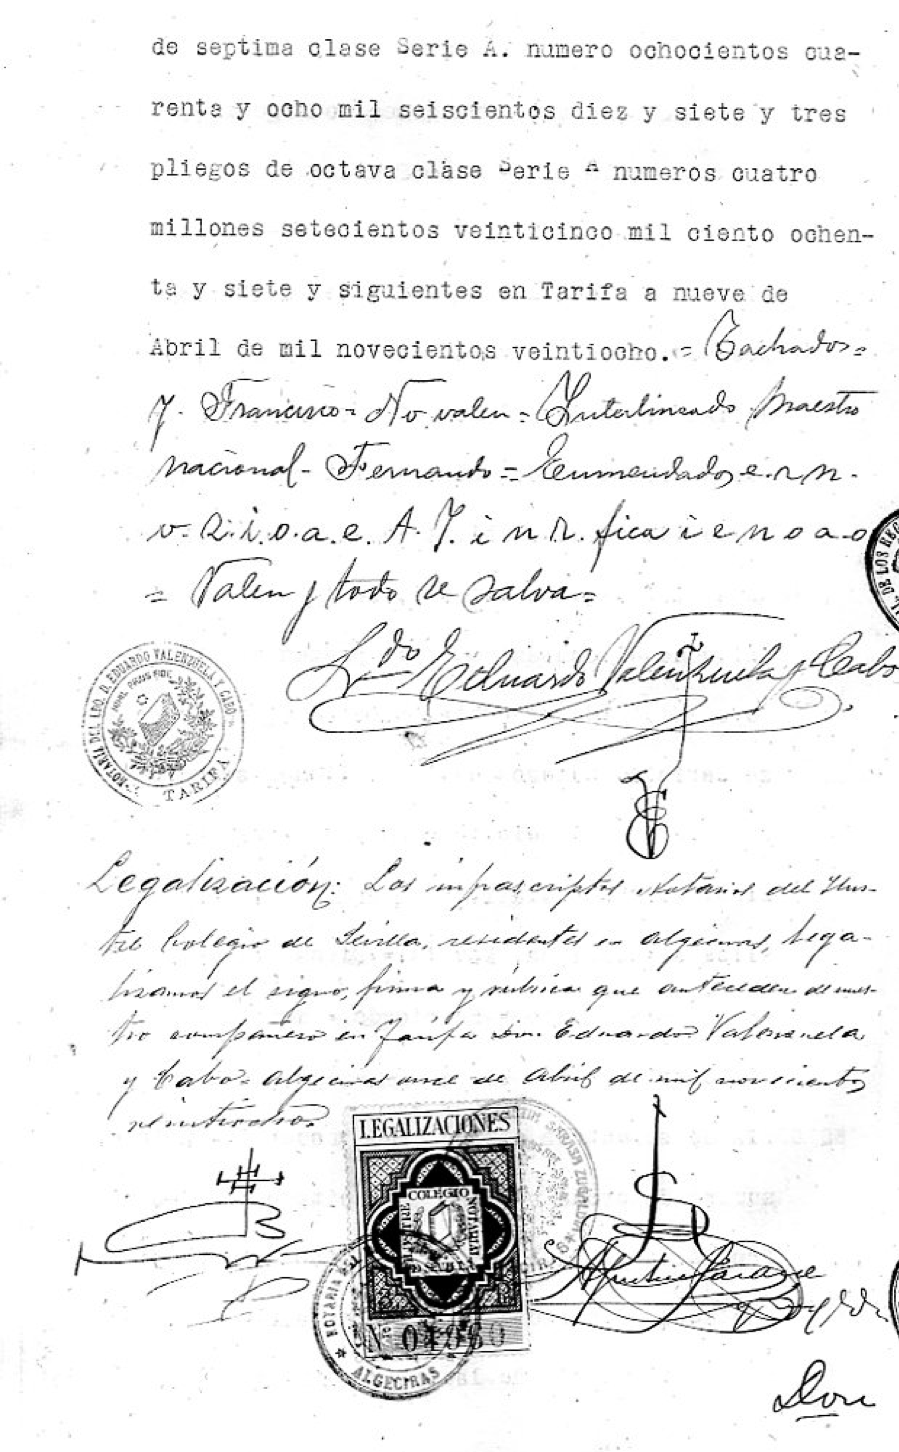 de septima clase Serie A. numero ochocientos cua-
renta y ocho mil seiscientos diez y siete y tres
pliegos de octava clase Serie A numeros cuatro
millones setecientos veinticinco mil ciento ochen-
ta y siete y siguientes en Tarifa a nueve de
Abril de mil novecientos veintiocho.= Tachados=
y. Francisco= No valen= Interlineado Maestro
nacional- Fernando= Enmendados e.r.n.
v. a. i. o. a. e. A. J. i n R. fica i e n o a o
= Valen y todo se salva=
Ldo Eduardo Valenzuela y Cabo
NOTARIA DEL ABO. D. EDUARDO VALENZUELA Y CABO
NIHIL PRIUS FIDE
TARIFA
DE LOS REG
Legalización: Los infrascriptos Notarios del Ilus-
tre Colegio de Sevilla, residentes en Algeciras, lega-
lizamos el signo, firma y rúbrica que anteceden de nues-
tro compañero en Tarifa Don Eduardo Valenzuela
y Cabo= Algeciras once de Abril de mil novecientos
veintiocho=
LEGALIZACIONES
ILUSTRE COLEGIO NOTARIAL
DE SEVILLA
Nº
NOTARIA DE
ALGECIRAS
Don